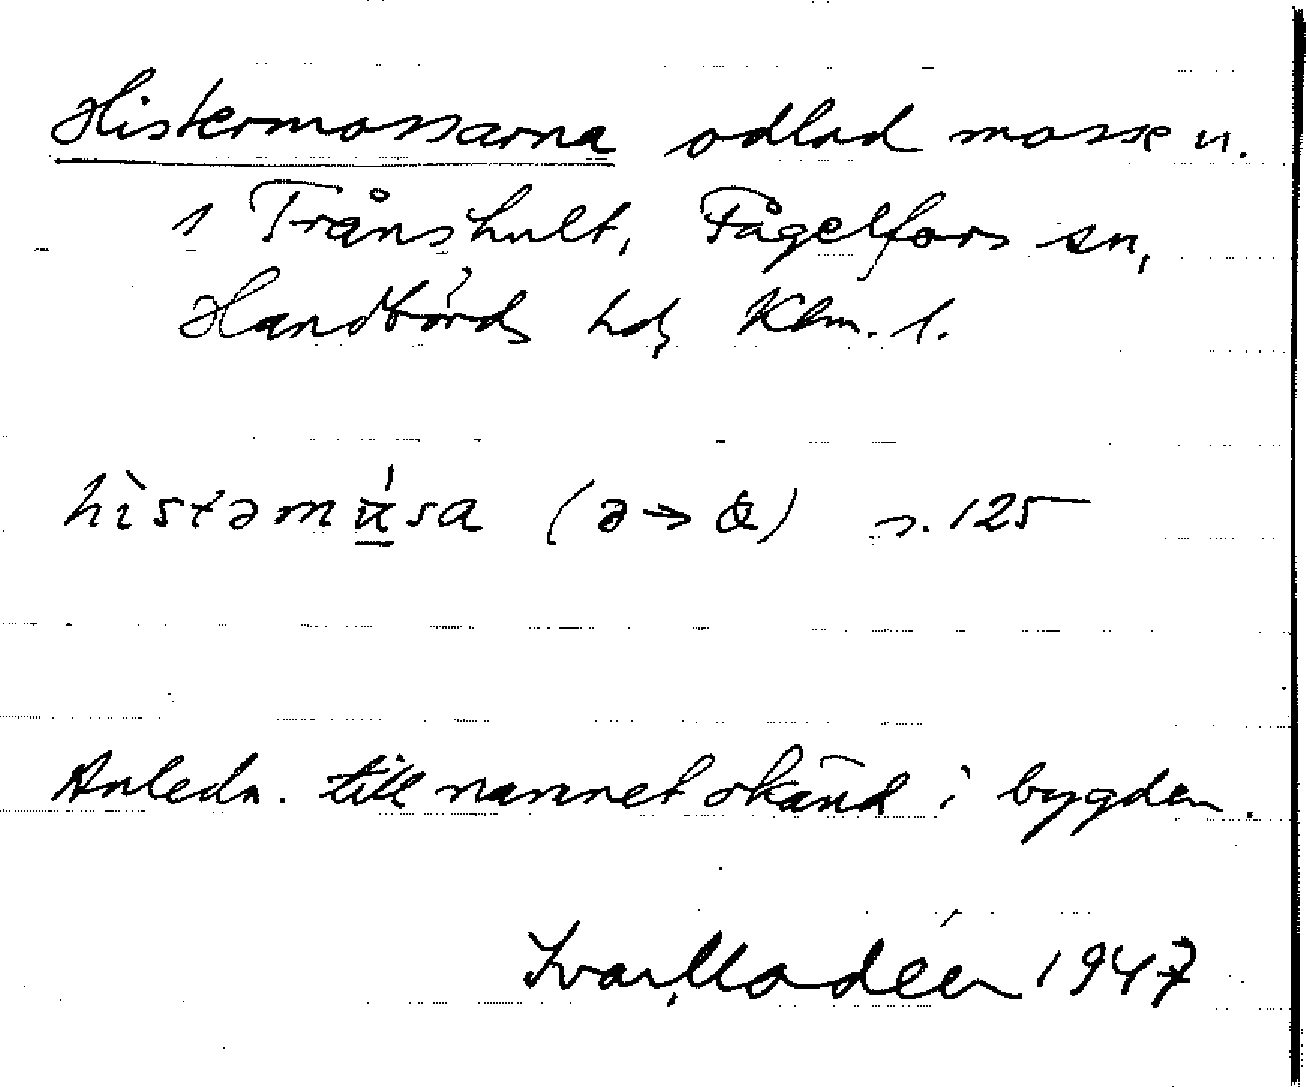 Histermossarna odlad mosse u.
1 Trånshult, Fågelfors sn,
Handbörds hd, Klm. l.
hìstəmúsa (ə→ s. 125
Anledn. till namnet okänd i bygden.
Ivar Modéer 1947